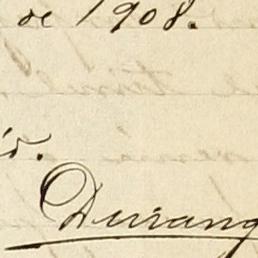 de 1908.
id.
Durang